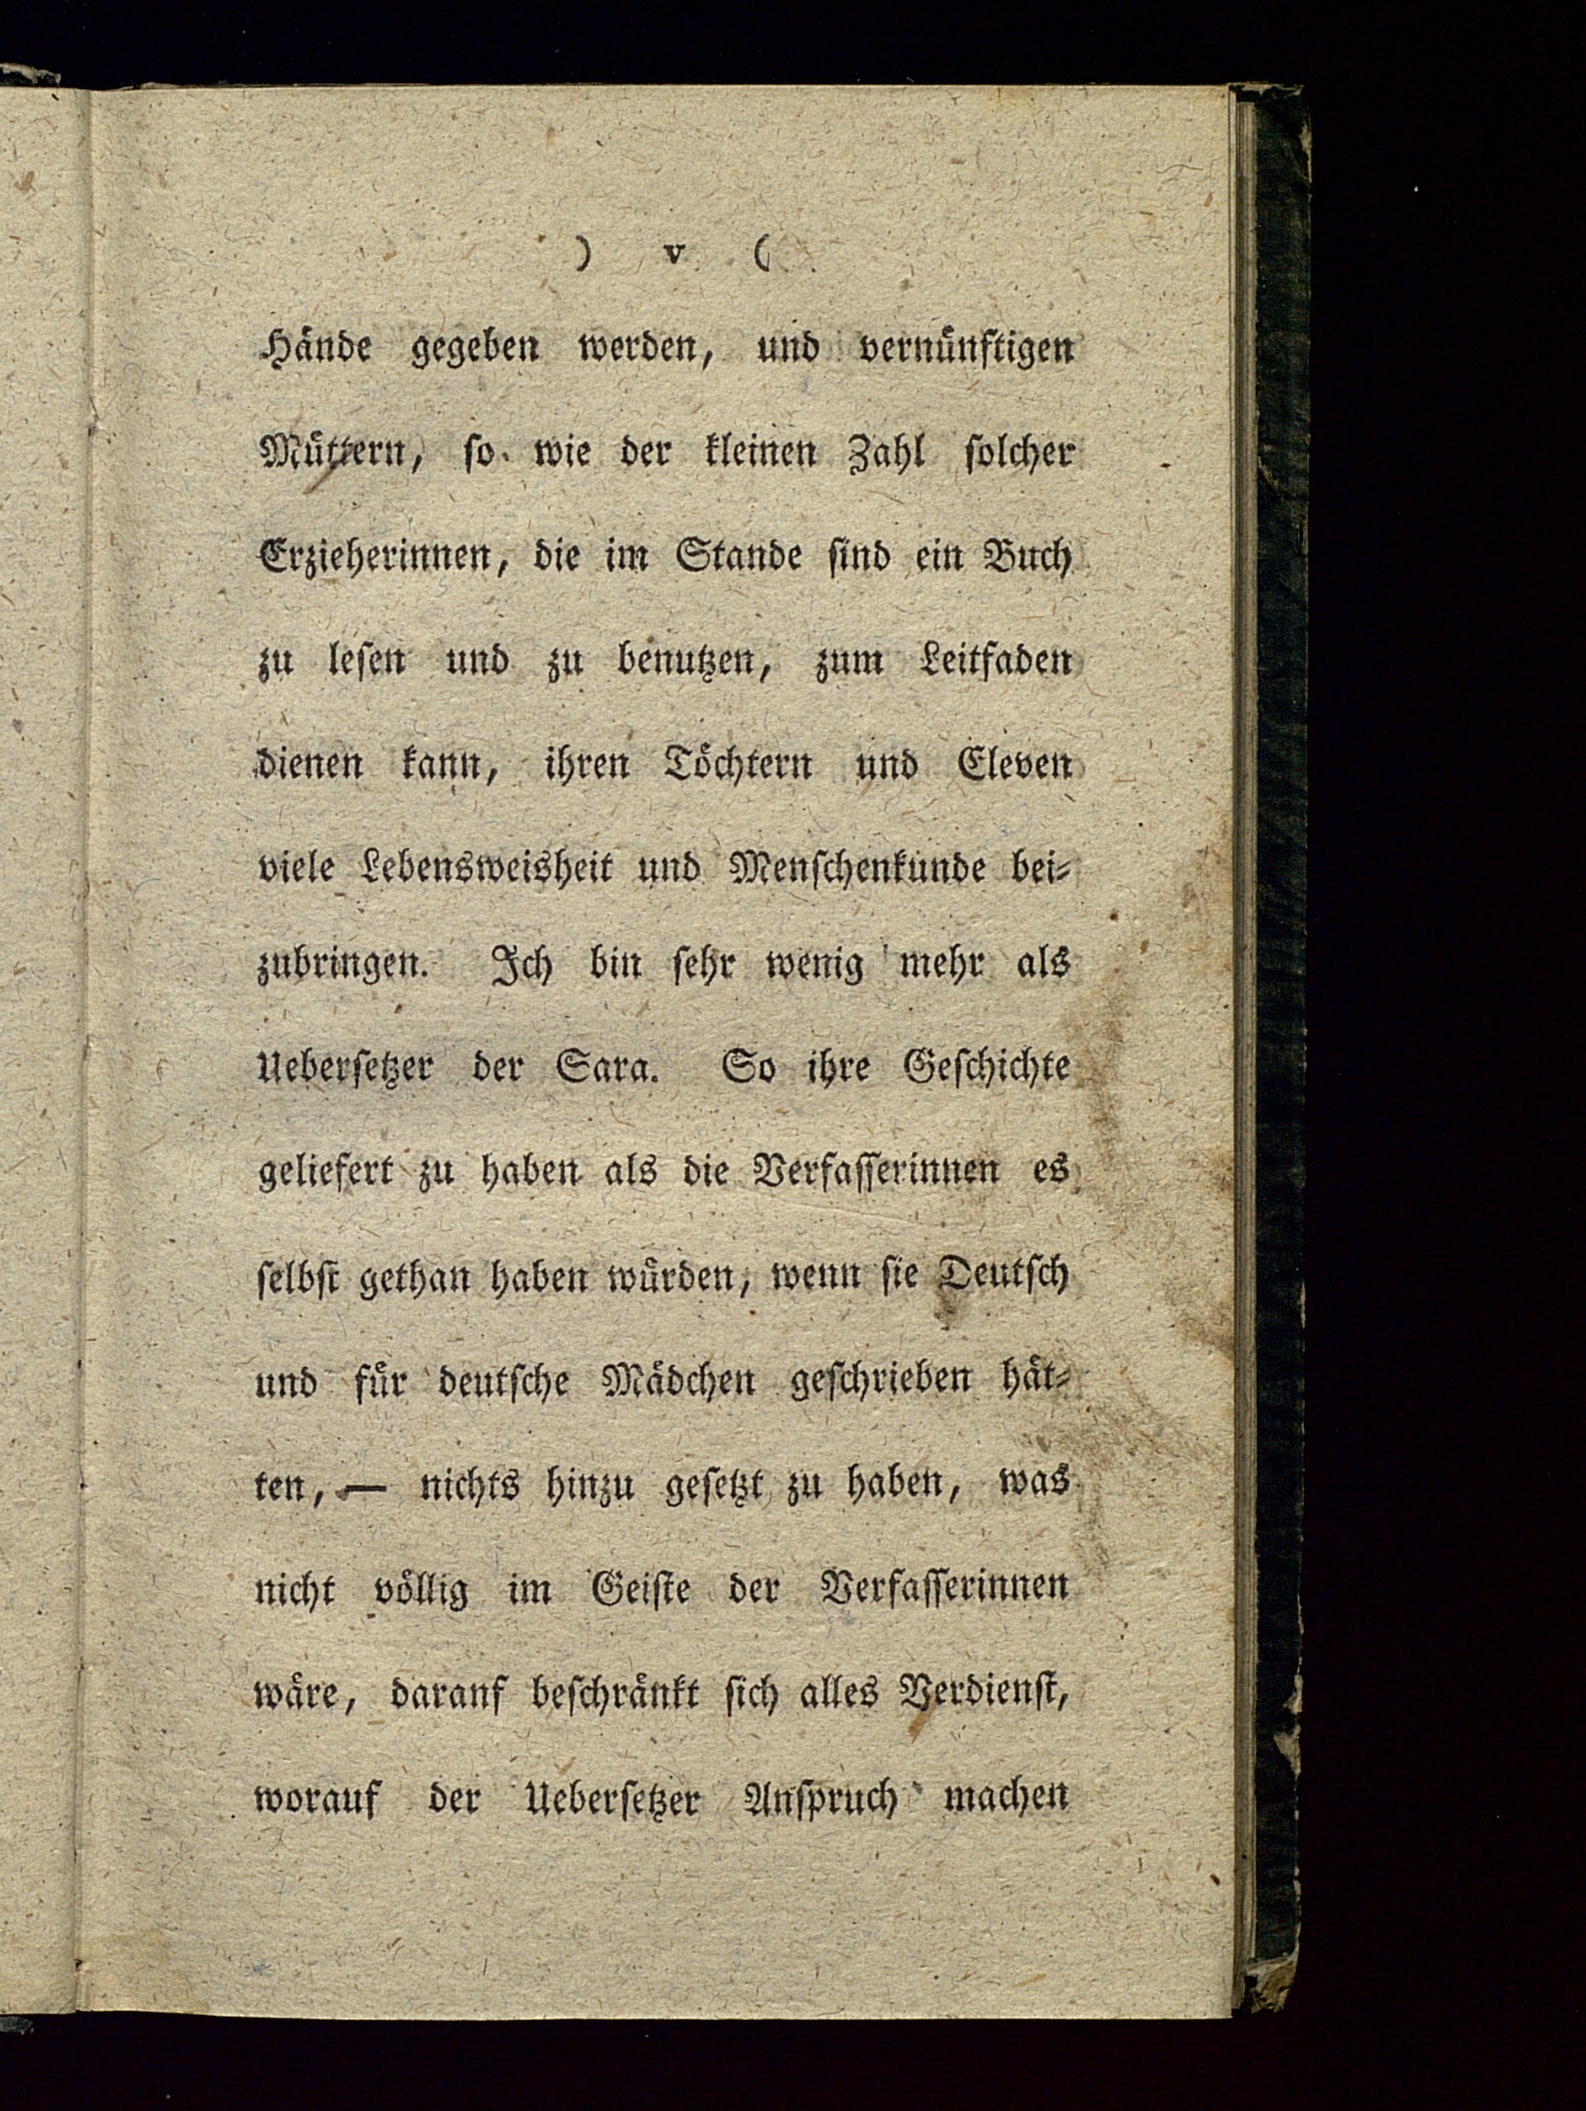 ) v (
Hände gegeben werden, und vernünftigen
Müttern, so wie der kleinen Zahl solcher
Erzieherinnen, die im Stande sind ein Buch
zu lesen und zu benutzen, zum Leitfaden
dienen kann, ihren Töchtern und Eleven
viele Lebensweisheit und Menschenkunde bei-
zubringen. Ich bin sehr wenig mehr als
Uebersetzer der Sara. So ihre Geschichte
geliefert zu haben als die Verfasserinnen es
selbst gethan haben würden, wenn sie Deutsch
und für deutsche Mädchen geschrieben hät-
ten, — nichts hinzu gesetzt zu haben, was
nicht völlig im Geiste der Verfasserinnen
wäre, daranf beschränkt sich alles Verdienst,
worauf der Uebersetzer Anspruch machen